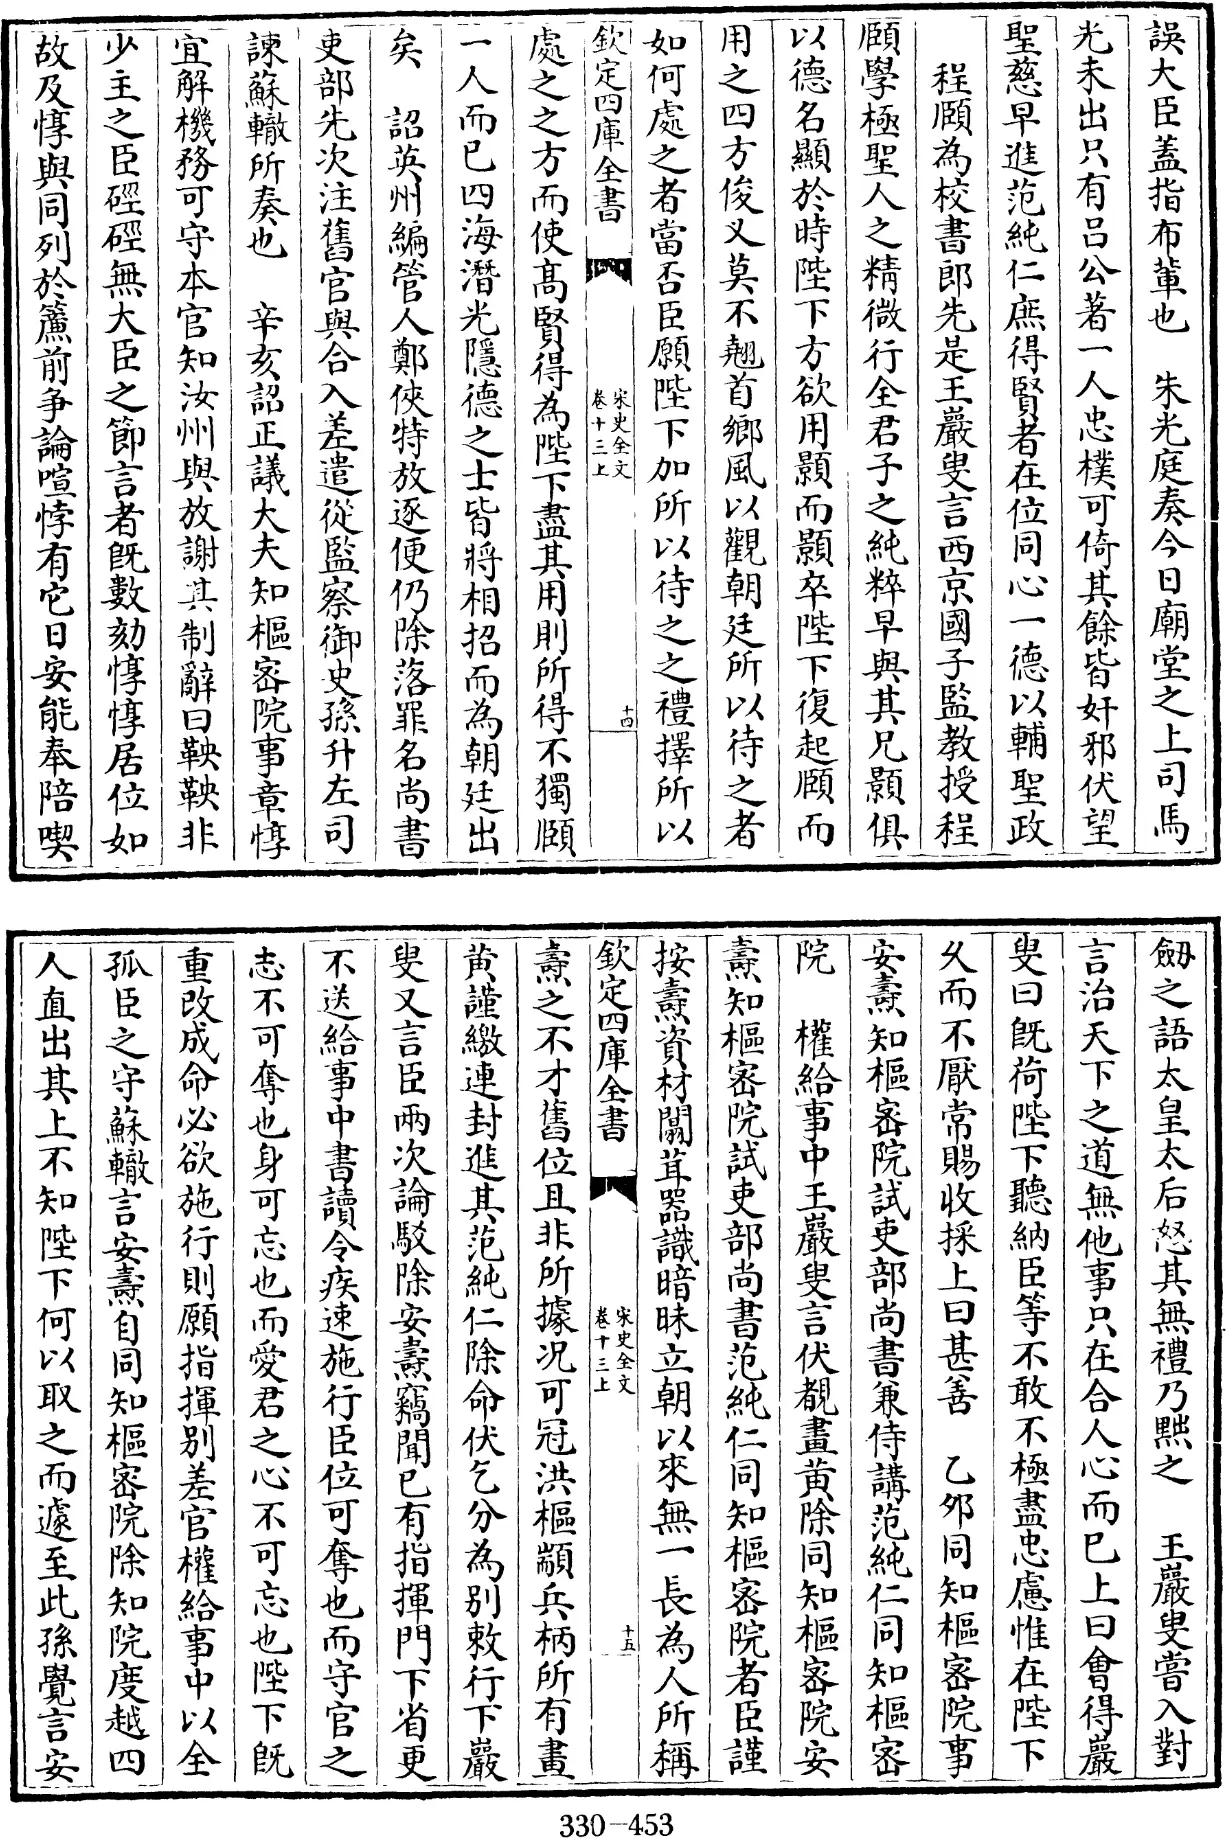 誤大臣蓋指布軰也　朱光庭奏今日廟堂之上司馬
光未出只有吕公著一人忠樸可倚其餘皆奸邪伏望
聖慈早進范純仁庶得賢者在位同心一德以輔聖政
程頤為校書郎先是王巖叟言西京國子監教授程
頤學極聖人之精微行全君子之純粹早與其兄顥俱
以德名顯於時陛下方欲用顥而顥卒陛下復起頤而
用之四方俊乂莫不翹首鄉風以觀朝廷所以待之者
如何處之者當否臣願陛下加所以待之之禮擇所以
欽定四庫全書　宋史全文　卷十三上　十四
處之之方而使髙賢得為陛下盡其用則所得不獨頤
一人而已四海潛光隱德之士皆將相招而為朝廷出
矣　詔英州編管人鄭俠特放逐便仍除落罪名尚書
吏部先次注舊官與合入差遣從監察御史孫升左司
諫蘇轍所奏也　辛亥詔正議大夫知樞密院事章惇
宜解機務可守本官知汝州與放謝其制辭曰鞅鞅非
少主之臣硜硜無大臣之節言者旣數劾惇惇居位如
故及惇與同列於簾前争論喧悖有它日安能奉陪喫
劒之語太皇太后怒其無禮乃黜之　王巖叟嘗入對
言治天下之道無他事只在合人心而已上曰會得巖
叟曰旣荷陛下聽納臣等不敢不極盡忠慮惟在陛下
乆而不厭常賜收採上曰甚善　乙夘同知樞密院事
安燾知樞密院試吏部尚書兼侍講范純仁同知樞密
院　權給事中王巖叟言伏覩畫黄除同知樞密院安
燾知樞密院試吏部尚書范純仁同知樞密院者臣謹
按燾資材闒茸器識暗昧立朝以來無一長為人所稱
欽定四庫全書　宋史全文　卷十三上　十五
燾之不才舊位且非所據况可冠洪樞顓兵柄所有畫
黄謹繳連封進其范純仁除命伏乞分為别敕行下巖
叟又言臣兩次論駁除安燾竊聞已有指揮門下省更
不送給事中書讀令疾速施行臣位可奪也而守官之
志不可奪也身可忘也而愛君之心不可忘也陛下旣
重改成命必欲施行則願指揮别差官權給事中以全
孤臣之守蘇轍言安燾自同知樞密院除知院度越四
人直出其上不知陛下何以取之而遽至此孫覺言安
330-453